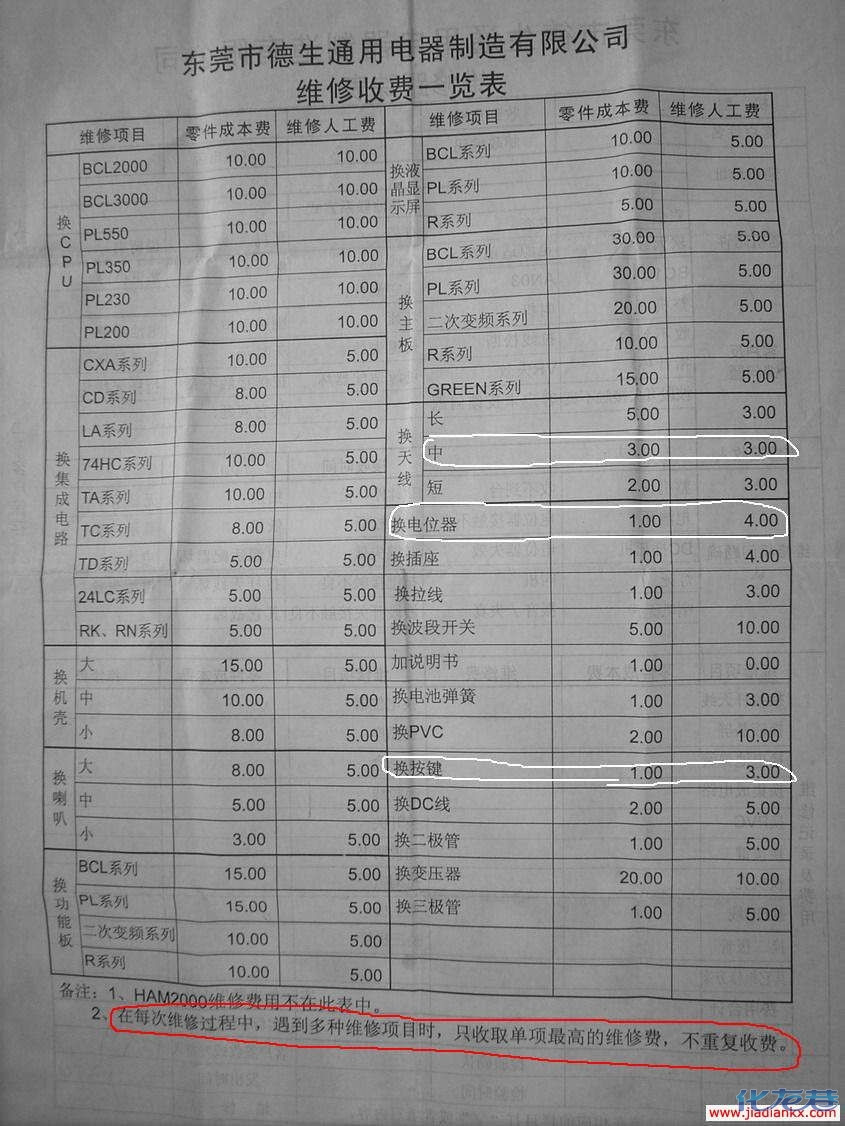 东莞市德生通用电器制造有限公司
维修收费一览表
维修项目 零件成本费 维修人工费 维修项目 零件成本费 维修人工费
换CPU
BCL2000 10.00 10.00
BCL3000 10.00 10.00
PL550 10.00 10.00
PL350 10.00 10.00
PL230 10.00 10.00
PL200 10.00 10.00
换集成电路
CXA系列 10.00 5.00
CD系列 8.00 5.00
LA系列 8.00 5.00
74HC系列 10.00 5.00
TA系列 10.00 5.00
TC系列 8.00 5.00
TD系列 5.00 5.00
24LC系列 5.00 5.00
RK、RN系列 5.00 5.00
换机壳
大 15.00 5.00
中 10.00 5.00
小 8.00 5.00
换喇叭
大 8.00 5.00
中 5.00 5.00
小 3.00 5.00
换功能板
BCL系列 15.00 5.00
PL系列 15.00 5.00
二次变频系列 10.00 5.00
R系列 10.00 5.00
换液晶显示屏
BCL系列 10.00 5.00
PL系列 10.00 5.00
R系列 5.00 5.00
换主板
BCL系列 30.00 5.00
PL系列 30.00 5.00
二次变频系列 20.00 5.00
R系列 10.00 5.00
GREEN系列 15.00 5.00
换天线
长 5.00 3.00
中 3.00 3.00
短 2.00 3.00
换电位器 1.00 4.00
换插座 1.00 4.00
换拉线 1.00 3.00
换波段开关 5.00 10.00
加说明书 1.00 0.00
换电池弹簧 1.00 3.00
换PVC 2.00 10.00
换按键 1.00 3.00
换DC线 2.00 5.00
换二极管 1.00 5.00
换变压器 20.00 10.00
换三极管 1.00 5.00
备注：1、HAM2000维修费用不在此表中。
2、在每次维修过程中，遇到多种维修项目时，只收取单项最高的维修费，不重复收费。
化龙巷
www.jiadiankx.com